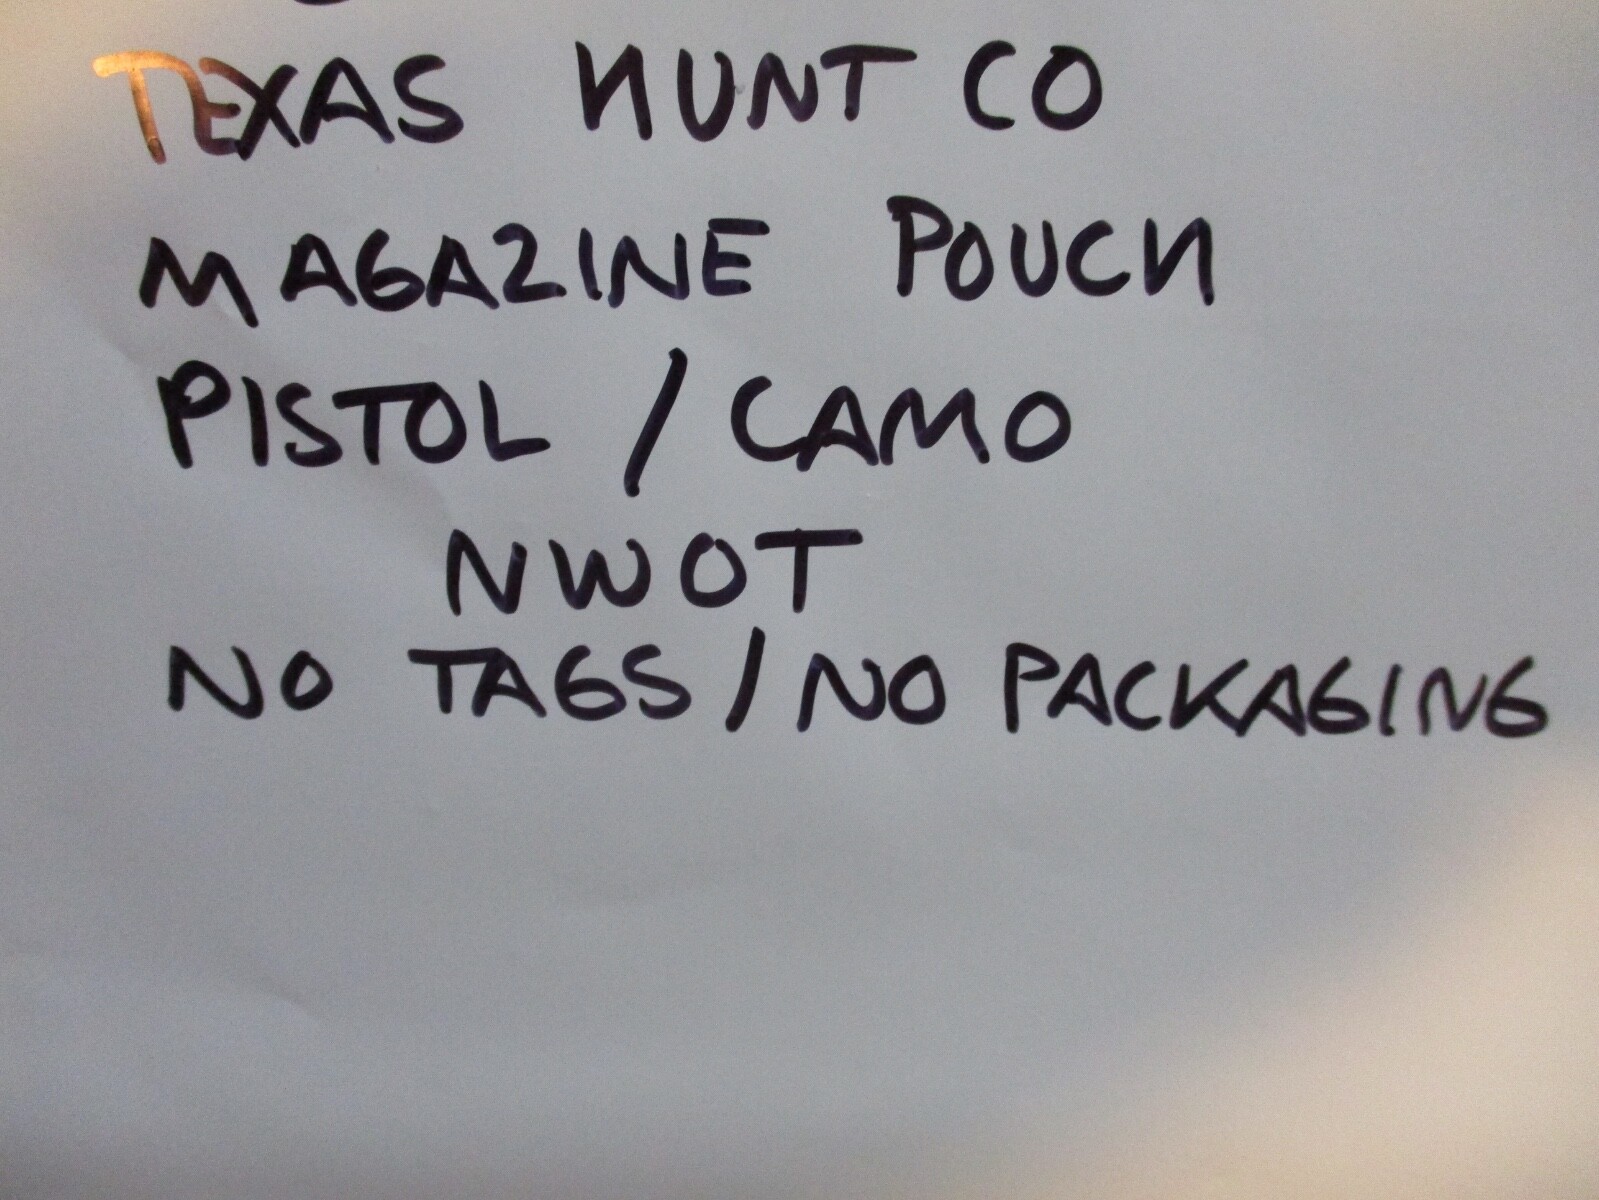 TEXAS HUNT CO
MAGAZINE POUCH
PISTOL / CAMO
NWOT
NO TAGS / NO PACKAGING